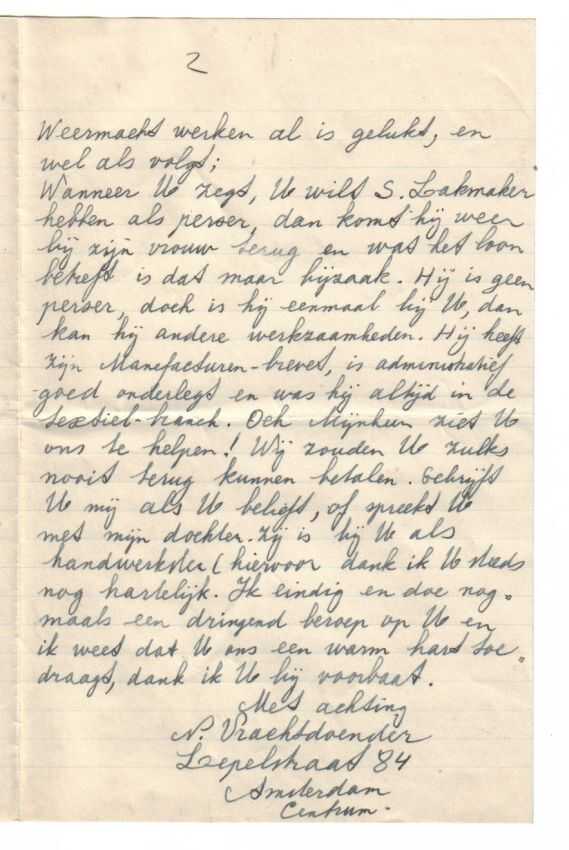 2
Weermacht werken al is gelukt, en
wel als volgt;
Wanneer U zegt, U wilt S. Lakmaker
hebben als perser, dan komt hij weer
bij zijn vrouw terug en wat het loon
betreft is dat maar bijzaak. Hij is geen
perser, doch is hij eenmaal bij U, dan
kan hij andere werkzaamheden. Hij heeft
zijn Manefacturen-brevet, is administratief
goed onderlegt en was hij altijd in de
textiel-branch. Och Mijnheer ziet U
ons te helpen! Wij zouden U zulks
nooit terug kunnen betalen. Schrijft
U mij als U belieft, of spreekt U
met mijn dochter. Zij is bij U als
handwerkster (hiervoor dank ik U steeds
nog hartelijk. Ik eindig en doe nog-
maals een dringend beroep op U en
ik weet dat U ons een warm hart toe-
draagt, dank ik U bij voorbaat.
Met achting
N. Vrachtdoender
Lepelstraat 84
Amsterdam
Centrum.